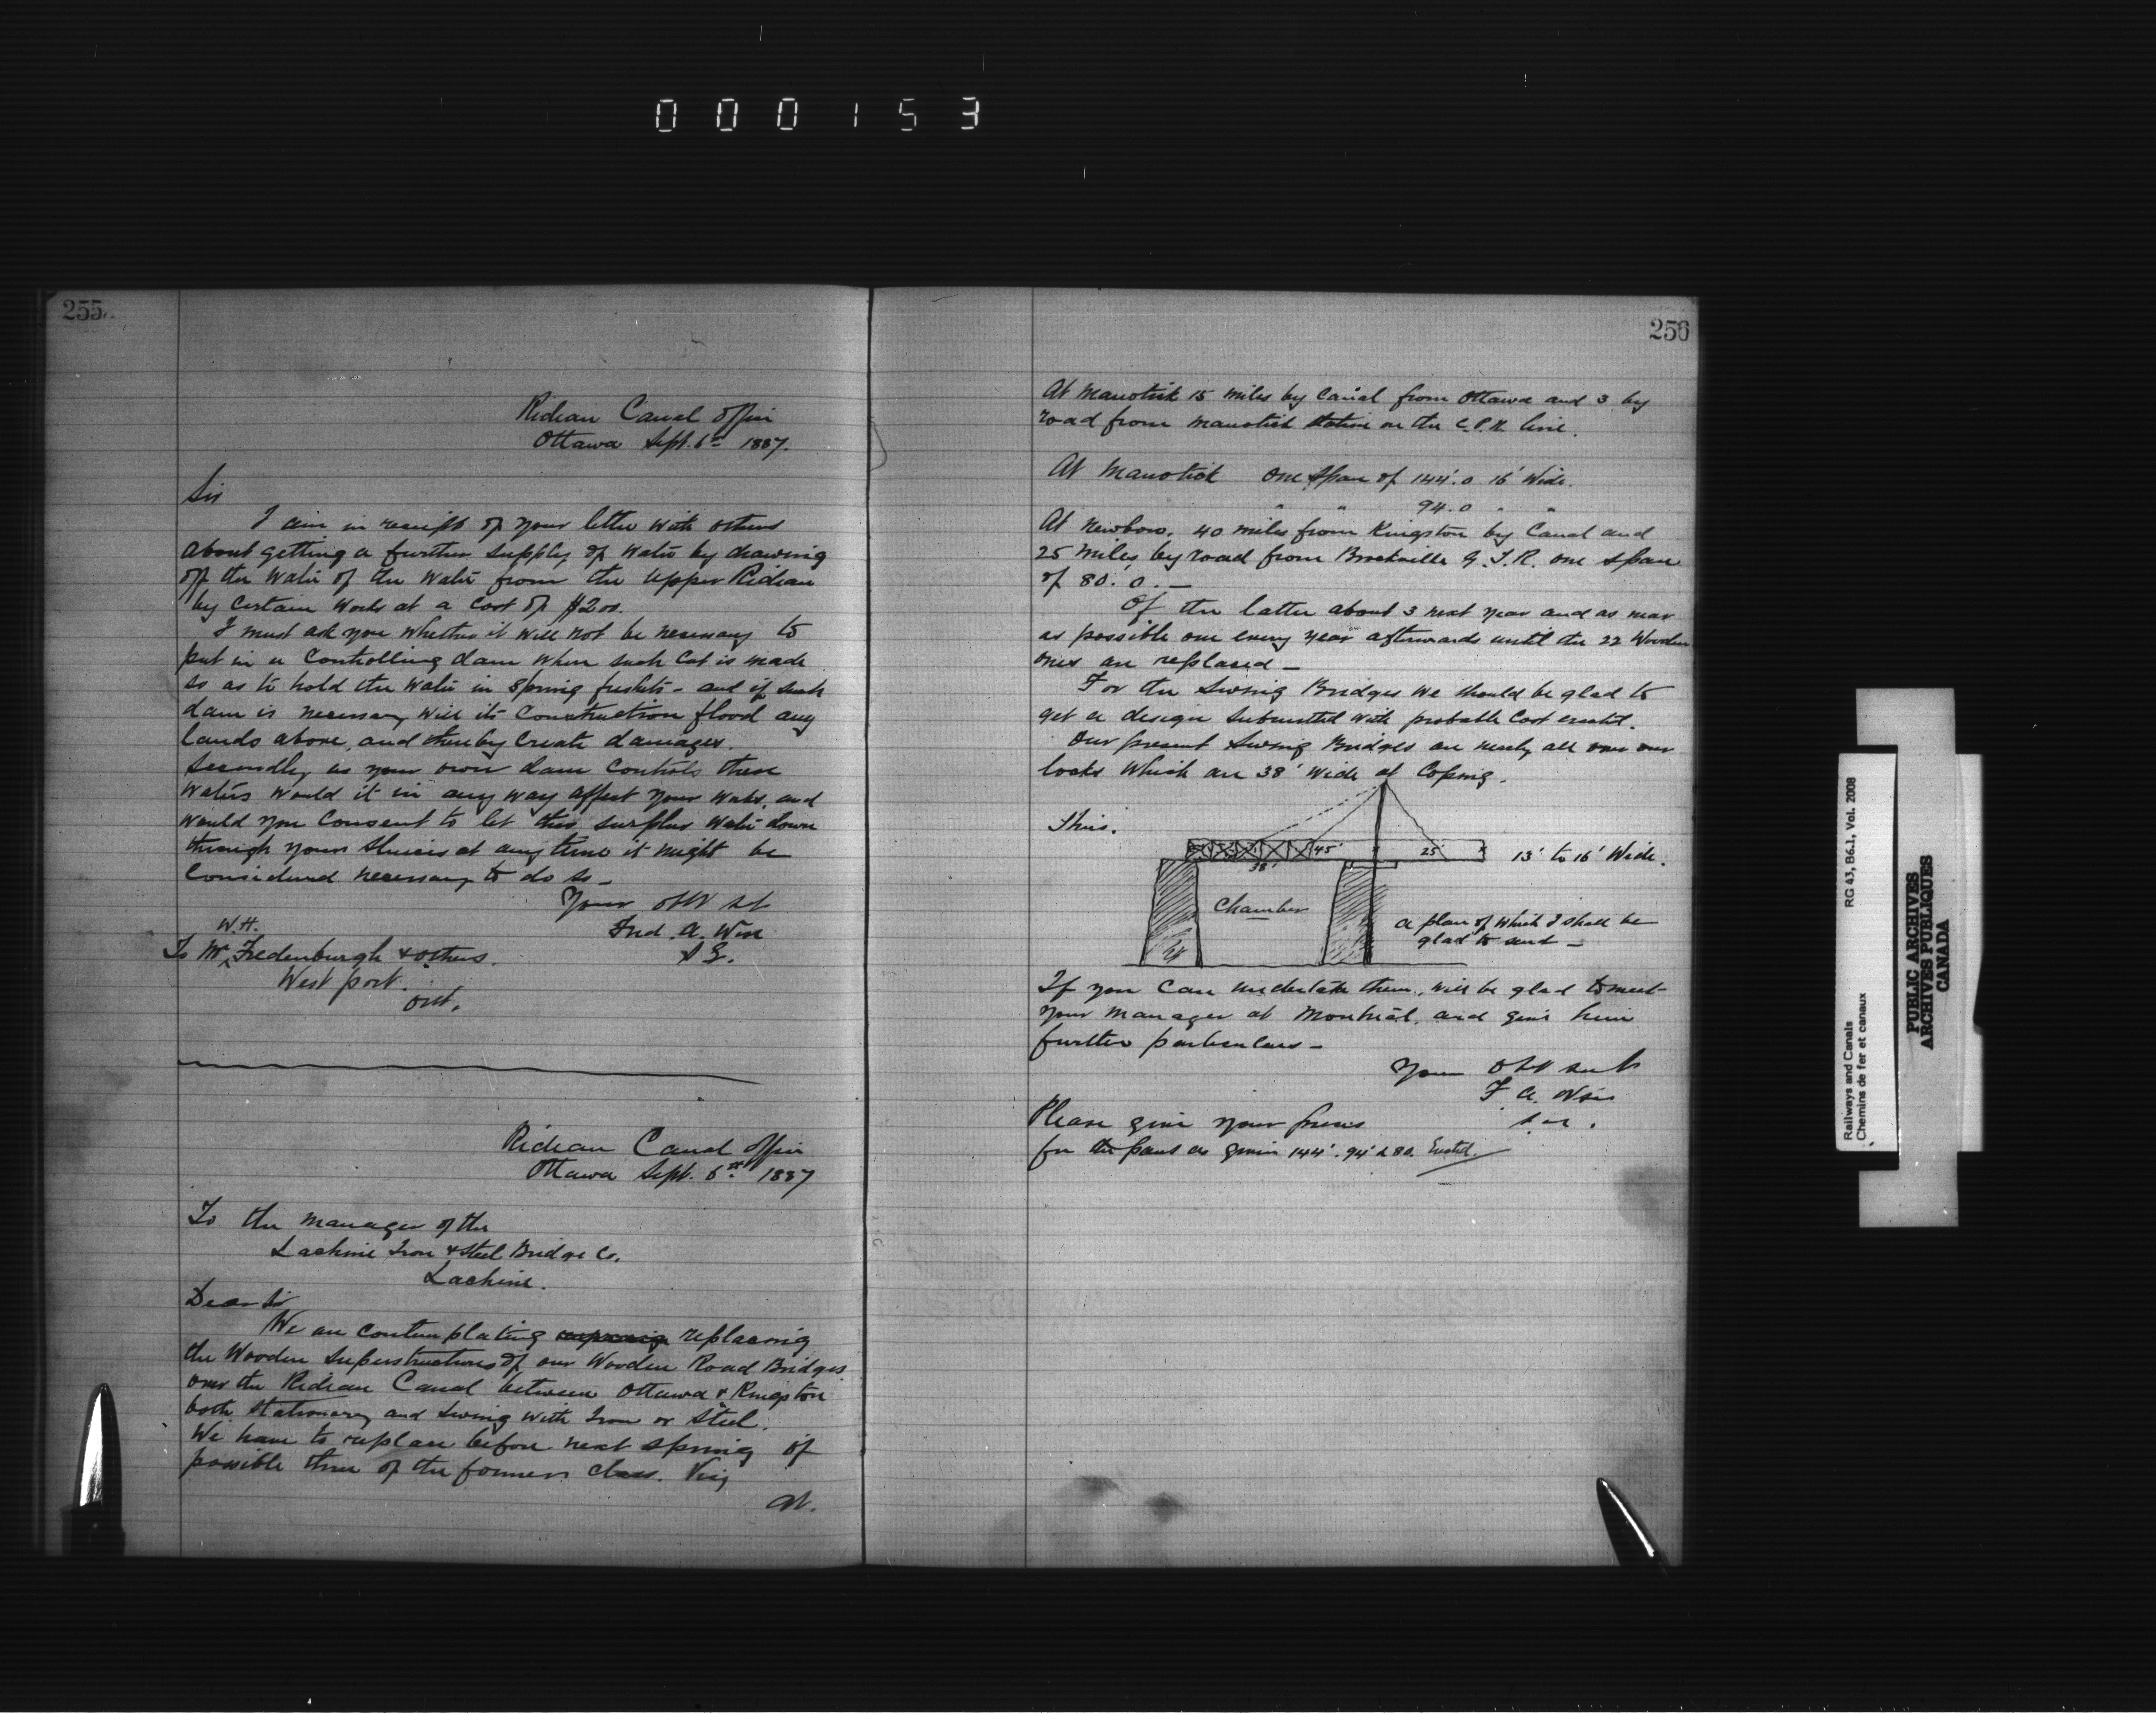 000153
255
Rideau Canal Office
Ottawa Sept. 6th 1887.
Sir
I am in receipt of your letter with others
about getting a further supply of water by drawing
off the water of the water from the Upper Rideau
by certain works at a cost of $200.
I must ask you whether it will not be necessary to
put in a controlling dam when such cut is made
so as to hold the water in spring freshets - and if such
dam is necessary will its construction flood any
lands above, and thereby create damages.
Secondly as your own dam controls these
waters would it in any way affect your works, and
would you consent to let this surplus water down
through your sluices at any time it might be
considered necessary to do so -
Your obt st
Fred. A. Wise
S E.
W. H.
To Mr Fredenburgh & others.
West port.
Ont.
Rideau Canal Office
Ottawa Sept. 6th 1887
To the manager of the
Lachine Iron & Steel Bridge Co.
Lachine.
Dear Sir
We are contemplating replacing
the Wooden Superstructures of our Wooden Road Bridges
over the Rideau Canal between Ottawa & Kingston
both stationary and swing with Iron or Steel.
We have to replace before next spring if
possible three of the former class. Viz
At.
256
At Manotick 15 miles by Canal from Ottawa and 3 by
road from Manotick station on the C.P.R. line.
At Manotick one span of 144'.0 16' Wide.
" " 94.0 " "
At Newboro, 40 miles from Kingston by Canal and
25 miles by road from Brockville G.T.R. one span
of 80'. 0. —
Of the latter about 3 next year and as near
as possible one every year afterwards until the 22 Wooden
ones are replaced —
For the Swing Bridges we should be glad to
get a design submitted with probable cost erected.
Our present Swing Bridges are nearly all over our
locks which are 38' wide at Coping.
Thus.
45'
25'
38'
13' to 16' Wide.
Chamber
a plan of which I shall be
glad to send —
If you can undertake them, will be glad to meet
your manager at Montreal, and give him
further particulars —
Your Obt Sert
F. A. Wise
Please give your prices
for the spans as given 144'. 94' & 80. Erected.
Railways and Canals
Chemins de fer et canaux
RG 43, B6.1, Vol. 2008
PUBLIC ARCHIVES
ARCHIVES PUBLIQUES
CANADA